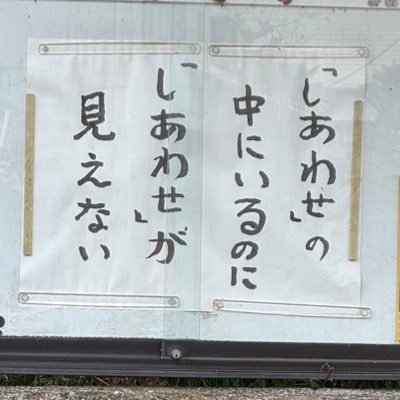 「しあわせ」の
中にいるのに
「しあわせ」が
見えない